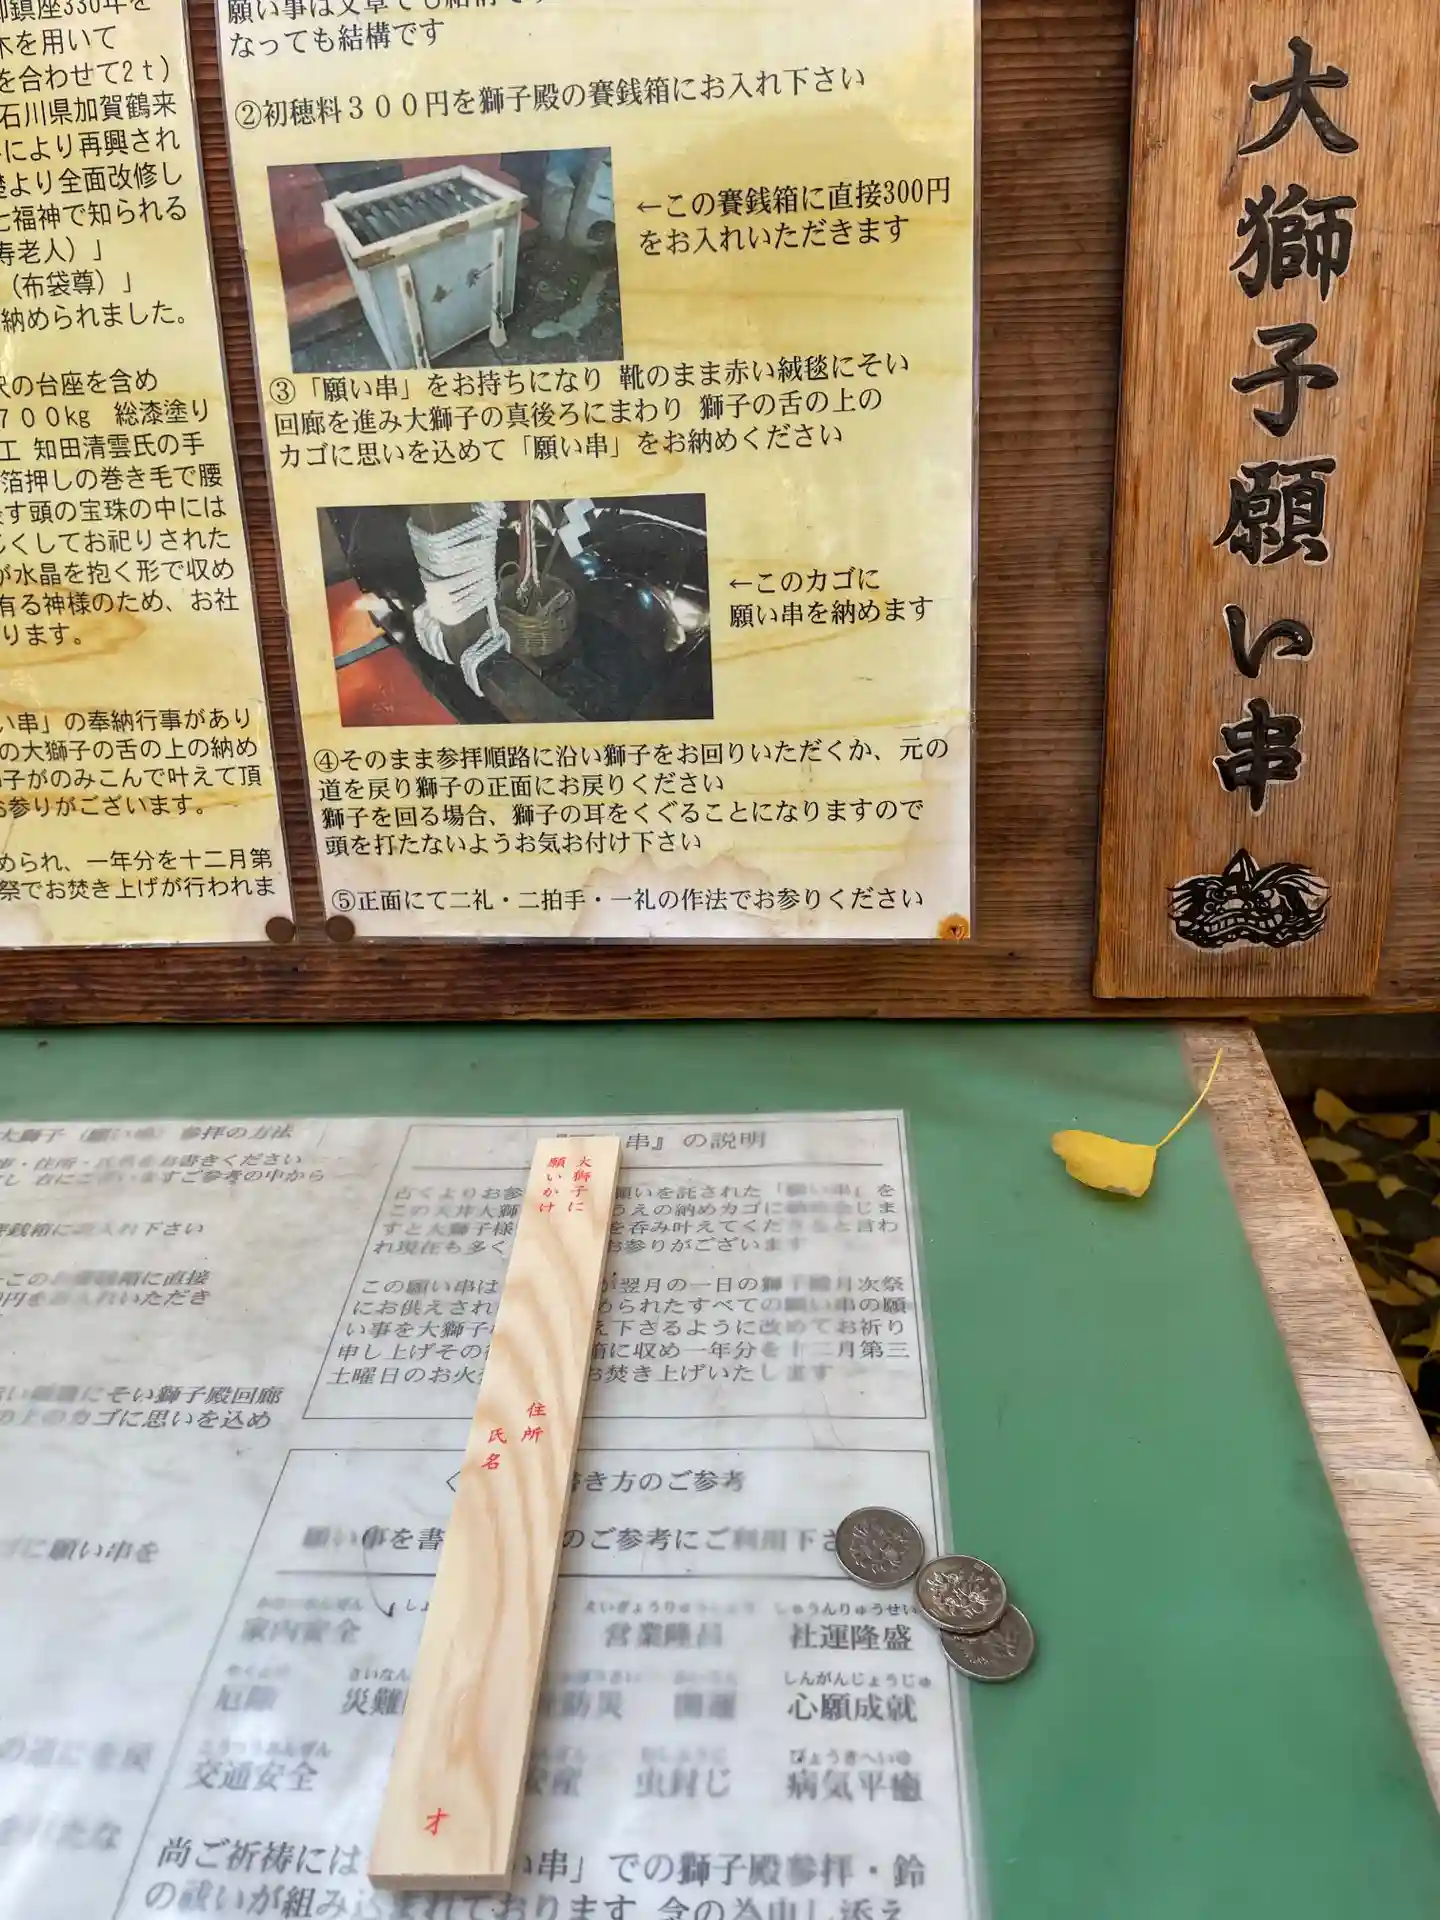 御鎮座330年を
木を用いて
を合わせて2ｔ）
石川県加賀鶴来
により再興され
より全面改修し
七福神で知られる
寿老人）」
（布袋尊）」
納められました。
の台座を含め
７００kg 総漆塗り
工 知田清雲氏の手
箔押しの巻き毛で腰
す頭の宝珠の中には
くしてお祀りされた
が水晶を抱く形で収め
有る神様のため、お社
ります。
い串」の奉納行事があり
の大獅子の舌の上の納め
子がのみこんで叶えて頂
お参りがございます。
められ、一年分を十二月第
祭でお焚き上げが行われま
願い事は文章でも結構です
なっても結構です
②初穂料３００円を獅子殿の賽銭箱にお入れ下さい
←この賽銭箱に直接300円
をお入れいただきます
③「願い串」をお持ちになり 靴のまま赤い絨毯にそい
回廊を進み大獅子の真後ろにまわり 獅子の舌の上の
カゴに思いを込めて「願い串」をお納めください
←このカゴに
願い串を納めます
④そのまま参拝順路に沿い獅子をお回りいただくか、元の
道を戻り獅子の正面にお戻りください
獅子を回る場合、獅子の耳をくぐることになりますので
頭を打たないようお気お付け下さい
⑤正面にて二礼・二拍手・一礼の作法でお参りください
大獅子願い串
大獅子（願い串）参拝の方法
・住所・氏名をお書きください
右にございますご参考の中から
賽銭箱にお入れ下さい
このお賽銭箱に直接
円をお入れいただき
にそい獅子殿回廊
の上のカゴに思いを込め
に願い串を
串』の説明
古くよりお参
願いを託された「願い串」を
この天井大獅
うえの納めカゴに納めなじま
すと大獅子様
を呑み叶えてくださると言わ
れ現在も多く
お参りがございます
この願い串は
が翌月の一日の獅子殿月次祭
にお供えされ
められたすべての願い串の願
い事を大獅子
え下さるように改めてお祈り
申し上げその
箱に収め一年分を十二月第三
土曜日のお火
お焚き上げいたします
書き方のご参考
願い事を書
のご参考にご利用下さ
かないあんぜん
家内安全
えいぎょうりゅうしょう
営業隆昌
しゃうんりゅうせい
社運隆盛
やくよけ
厄除
さいなん
災難
防災
開運
しんがんじょうじゅ
心願成就
こうつうあんぜん
交通安全
安産
むしふうじ
虫封じ
びょうきへいゆ
病気平癒
尚ご祈祷には
い串」での獅子殿参拝・鈴
の祓いが組み込まれております 念の為申し添え
大獅子に
願いかけ
住所
氏名
才